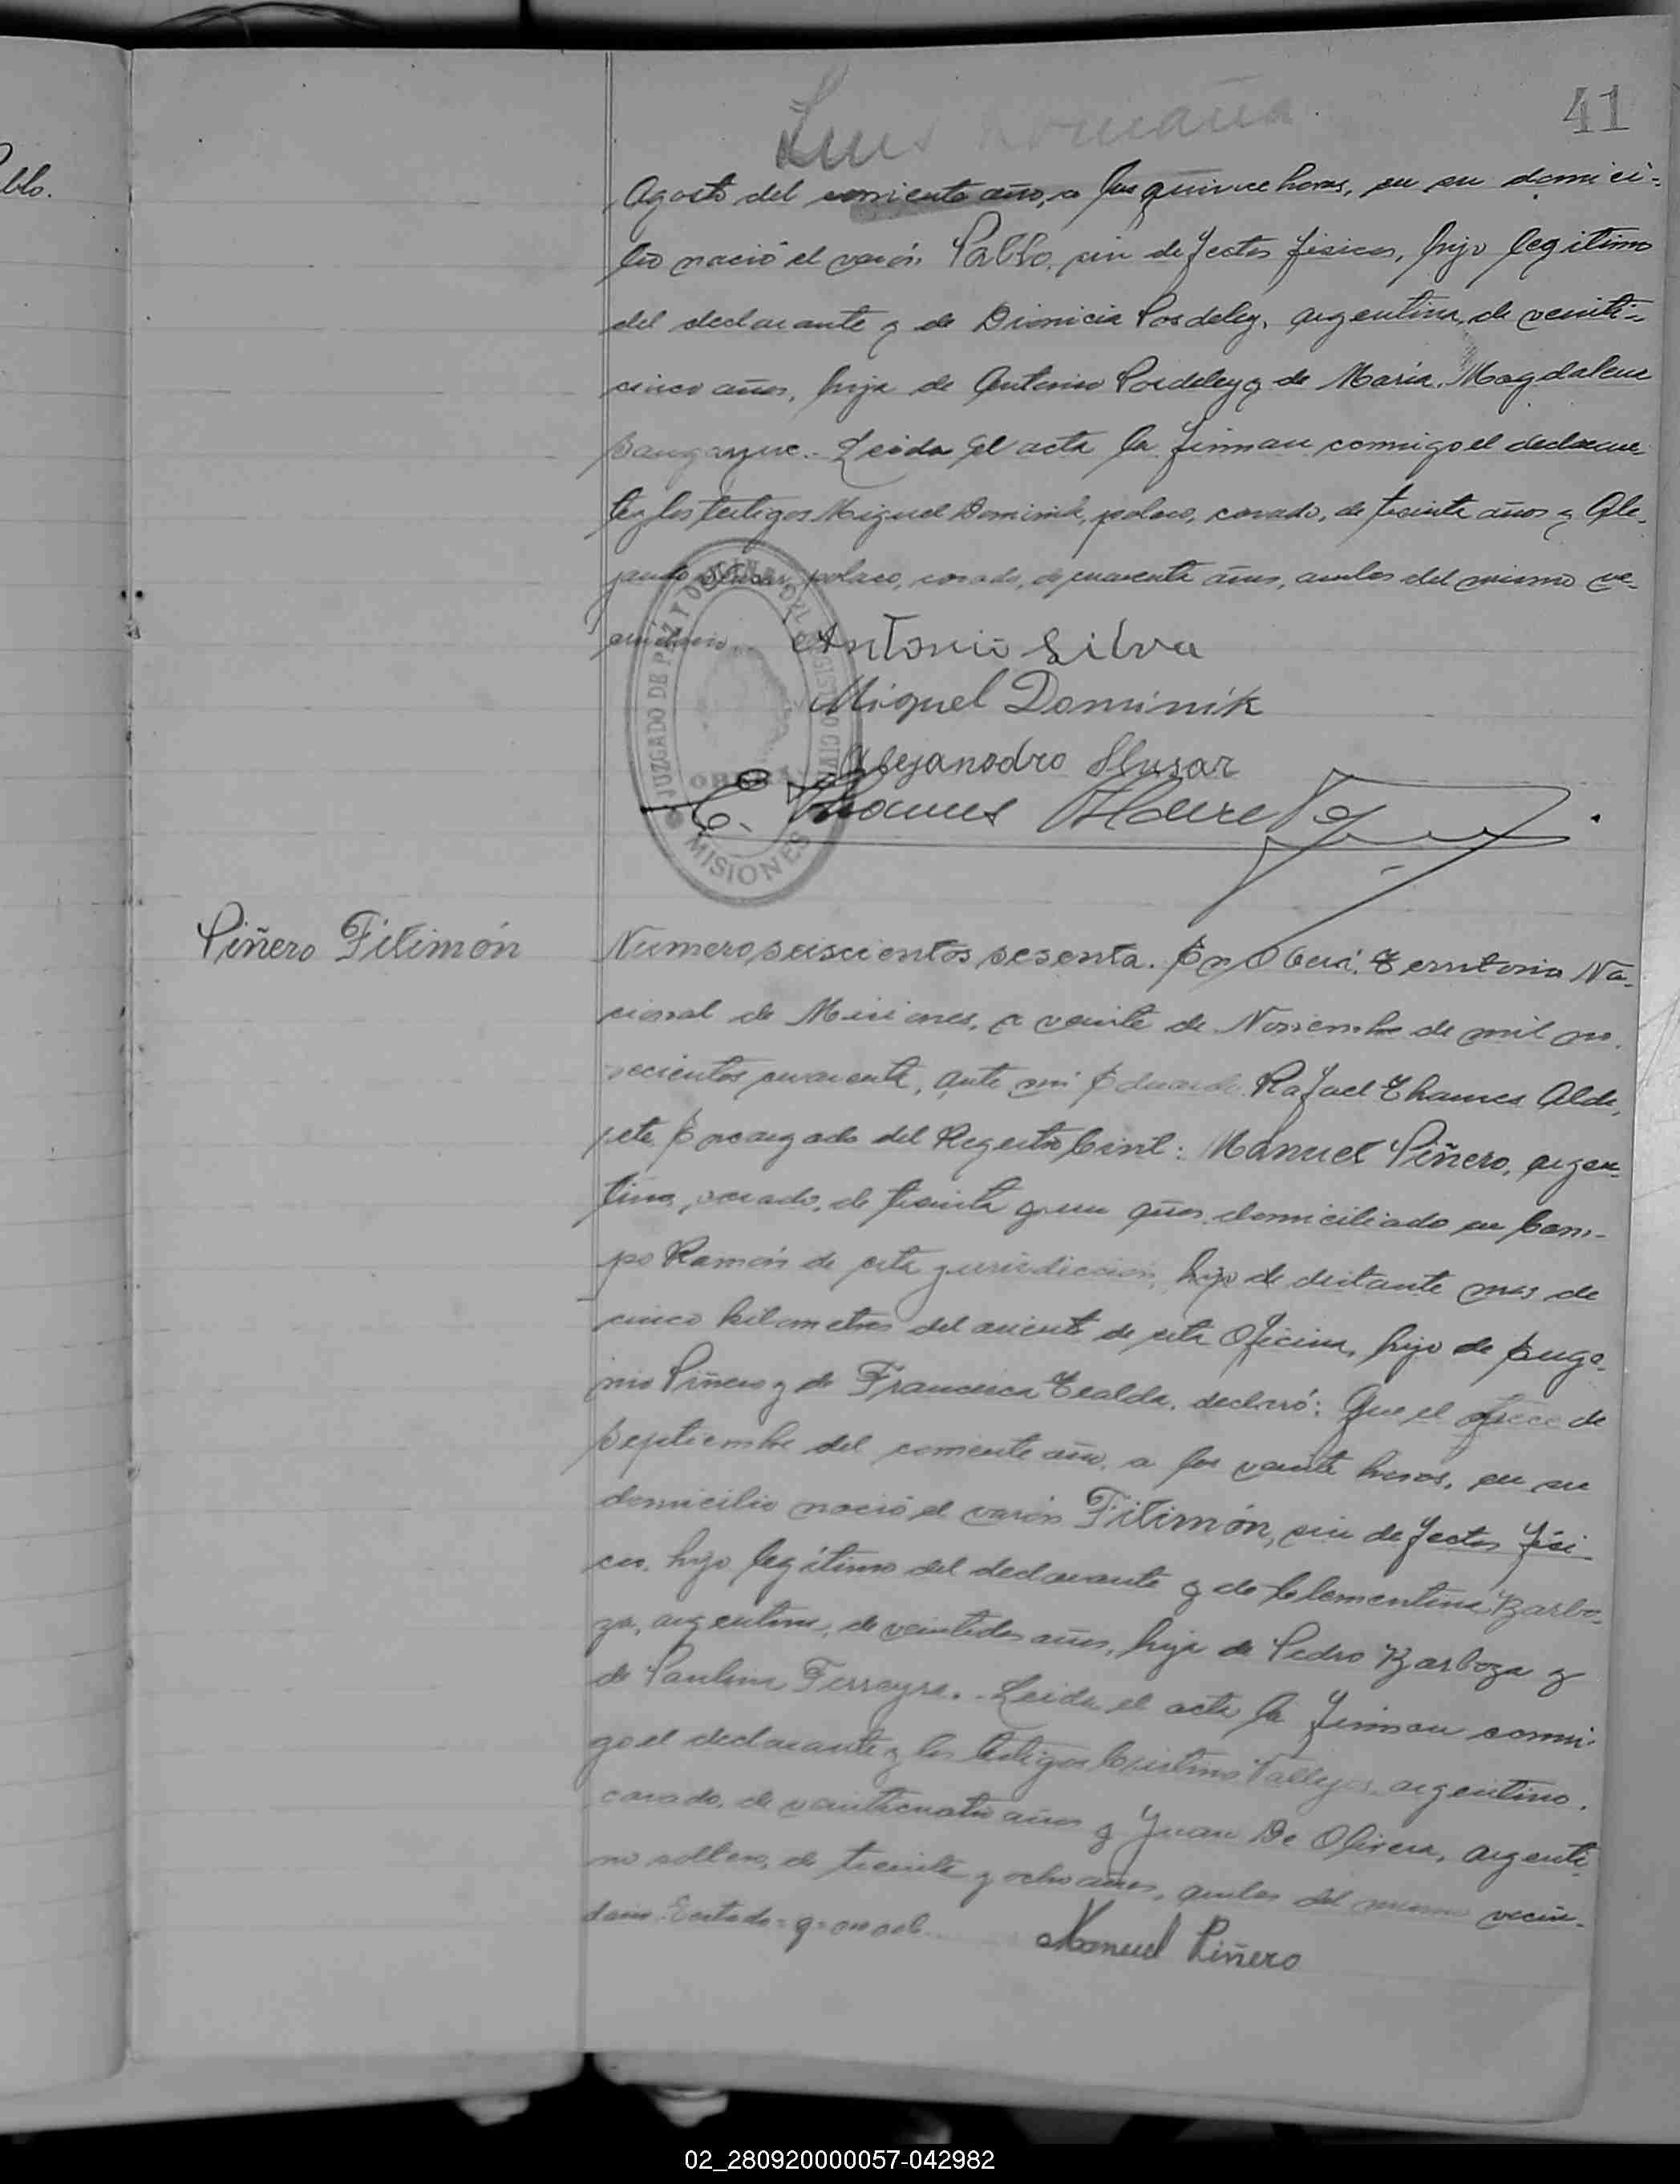 41
Luis Romaña
blo.
Agosto del corriente año, a las quince horas, en su domici-
lio nació el varón Pablo, sin defectos físicos, hijo legítimo
del declarante y de Dionicia Posdeley, argentina, de veinti-
cinco años, hija de Antonio Posdeley y de María Magdalena
Leida el acta la firman conmigo el declaran-
te y los testigos Miguel Dominik, polaco, casado, de treinta años y Ale-
jandro Slusar, polaco, casado, de cuarenta años, ambos del mismo ve-
cindario.
Antonio Silva
Miguel Dominik
Alejanodro Slusar
E. Thames Alderete
JUZGADO DE PAZ Y REGISTRO CIVIL
OBERÁ
MISIONES
Piñero Filimón
Numero seiscientos sesenta. En Oberá, Territorio Na-
cional de Misiones, a veinte de Noviembre de mil no-
vecientos cuarenta, ante mi Eduardo Rafael Thames Alde-
rete, Encargado del Registro Civil: Manuel Piñero, argen-
tino, casado, de treinta y un años, domiciliado en Cam-
po Ramón de esta jurisdiccion, hijo de distante mas de
cinco kilometros del asiento de esta Oficina, hijo de Euge-
nio Piñero y de Francisca Tealda, declaró: Que el trece de
Septiembre del corriente año, a las veinte horas, en su
domicilio nació el varón Filimón, sin defectos físi-
cos, hijo legítimo del declarante y de Clementina Barbo-
za, argentina, de veintidos años, hija de Pedro Barboza y
de Paulina Ferreyra. - Leida el acta la firman conmi-
go el declarante y los testigos Cristino Vallejos, argentino,
casado, de veinticuatro años y Juan De Olivera, argenti-
no soltero, de treinta y ocho años, ambos del mismo vecin-
dario.
Manuel Piñero
02_280920000057-042982